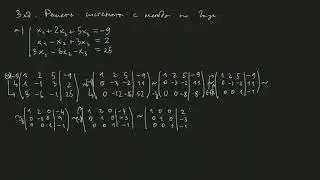 Зад. Решете системата с метода на Гаус
~1) | x₁ + 2x₂ + 5x₃ = -9
| x₁ - x₂ + 3x₃ = 2
| 3x₁ - 6x₂ - x₃ = 25
( 1 2 5 | -9 ; 1 -1 3 | 2 ; 3 -6 -1 | 25 ) ~ ( 1 2 5 | -9 ; 0 -3 -2 | 11 ; 0 -12 -16 | 52 ) ~ ( 1 2 5 | -9 ; 0 -3 -2 | 11 ; 0 0 -8 | 8 ) ~ ( 1 2 5 | -9 ; 0 -3 -2 | 11 ; 0 0 1 | -1 ) ~
~ ( 1 2 0 | -4 ; 0 -3 0 | 9 ; 0 0 1 | -1 ) ~ ( 1 2 0 | -4 ; 0 1 0 | -3 ; 0 0 1 | -1 ) ~ ( 1 0 0 | 2 ; 0 1 0 | -3 ; 0 0 1 | -1 )